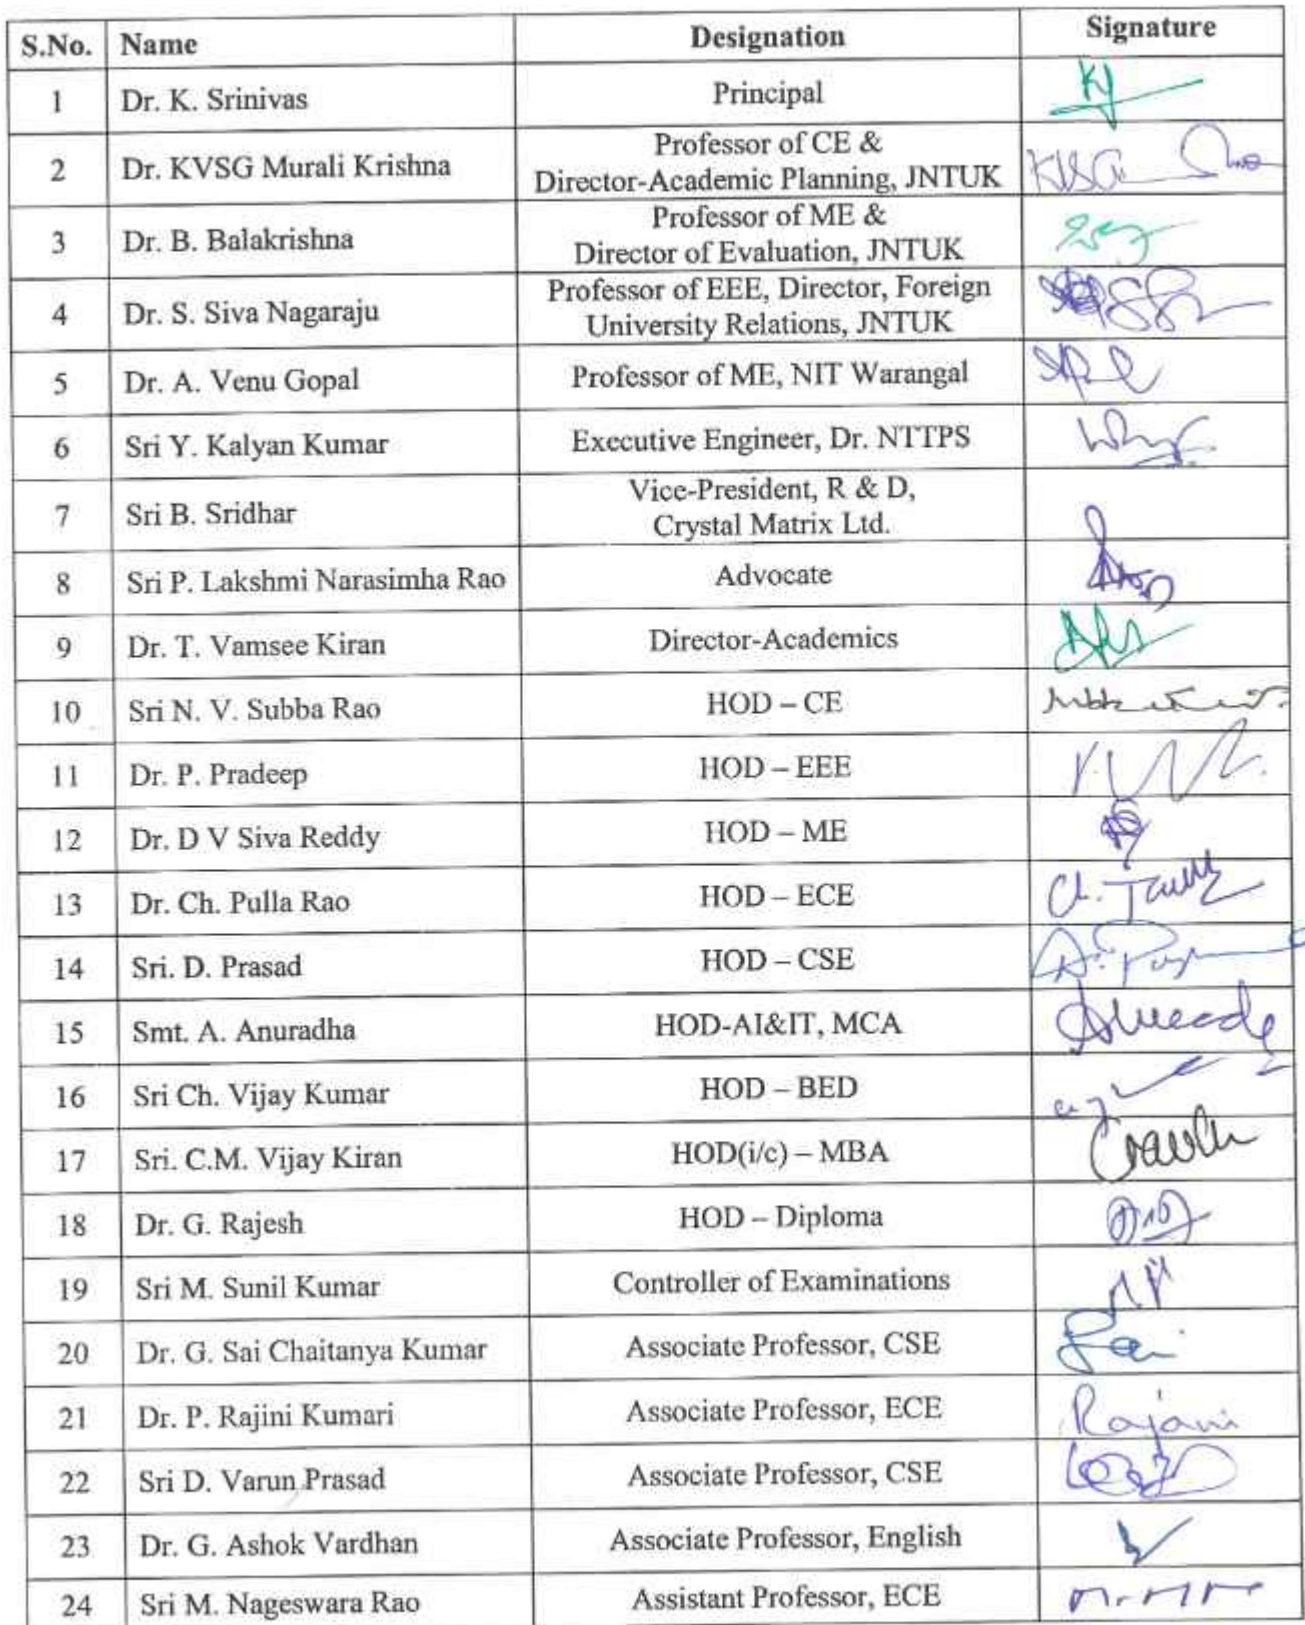 S.No. Name Designation Signature
1 Dr. K. Srinivas Principal
2 Dr. KVSG Murali Krishna Professor of CE &
Director-Academic Planning, JNTUK
3 Dr. B. Balakrishna Professor of ME &
Director of Evaluation, JNTUK
4 Dr. S. Siva Nagaraju Professor of EEE, Director, Foreign
University Relations, JNTUK
5 Dr. A. Venu Gopal Professor of ME, NIT Warangal
6 Sri Y. Kalyan Kumar Executive Engineer, Dr. NTTPS
7 Sri B. Sridhar Vice-President, R & D,
Crystal Matrix Ltd.
8 Sri P. Lakshmi Narasimha Rao Advocate
9 Dr. T. Vamsee Kiran Director-Academics
10 Sri N. V. Subba Rao HOD – CE
11 Dr. P. Pradeep HOD – EEE
12 Dr. D V Siva Reddy HOD – ME
13 Dr. Ch. Pulla Rao HOD – ECE
14 Sri. D. Prasad HOD – CSE
15 Smt. A. Anuradha HOD-AI&IT, MCA
16 Sri Ch. Vijay Kumar HOD – BED
17 Sri. C.M. Vijay Kiran HOD(i/c) – MBA
18 Dr. G. Rajesh HOD – Diploma
19 Sri M. Sunil Kumar Controller of Examinations
20 Dr. G. Sai Chaitanya Kumar Associate Professor, CSE Sai
21 Dr. P. Rajini Kumari Associate Professor, ECE Rajani
22 Sri D. Varun Prasad Associate Professor, CSE
23 Dr. G. Ashok Vardhan Associate Professor, English
24 Sri M. Nageswara Rao Assistant Professor, ECE